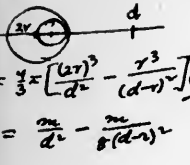 2r d
= 4/3 π [ (2r)³/d² - r³/(d-r)² ]
= m/d² - m/8(d-r)²